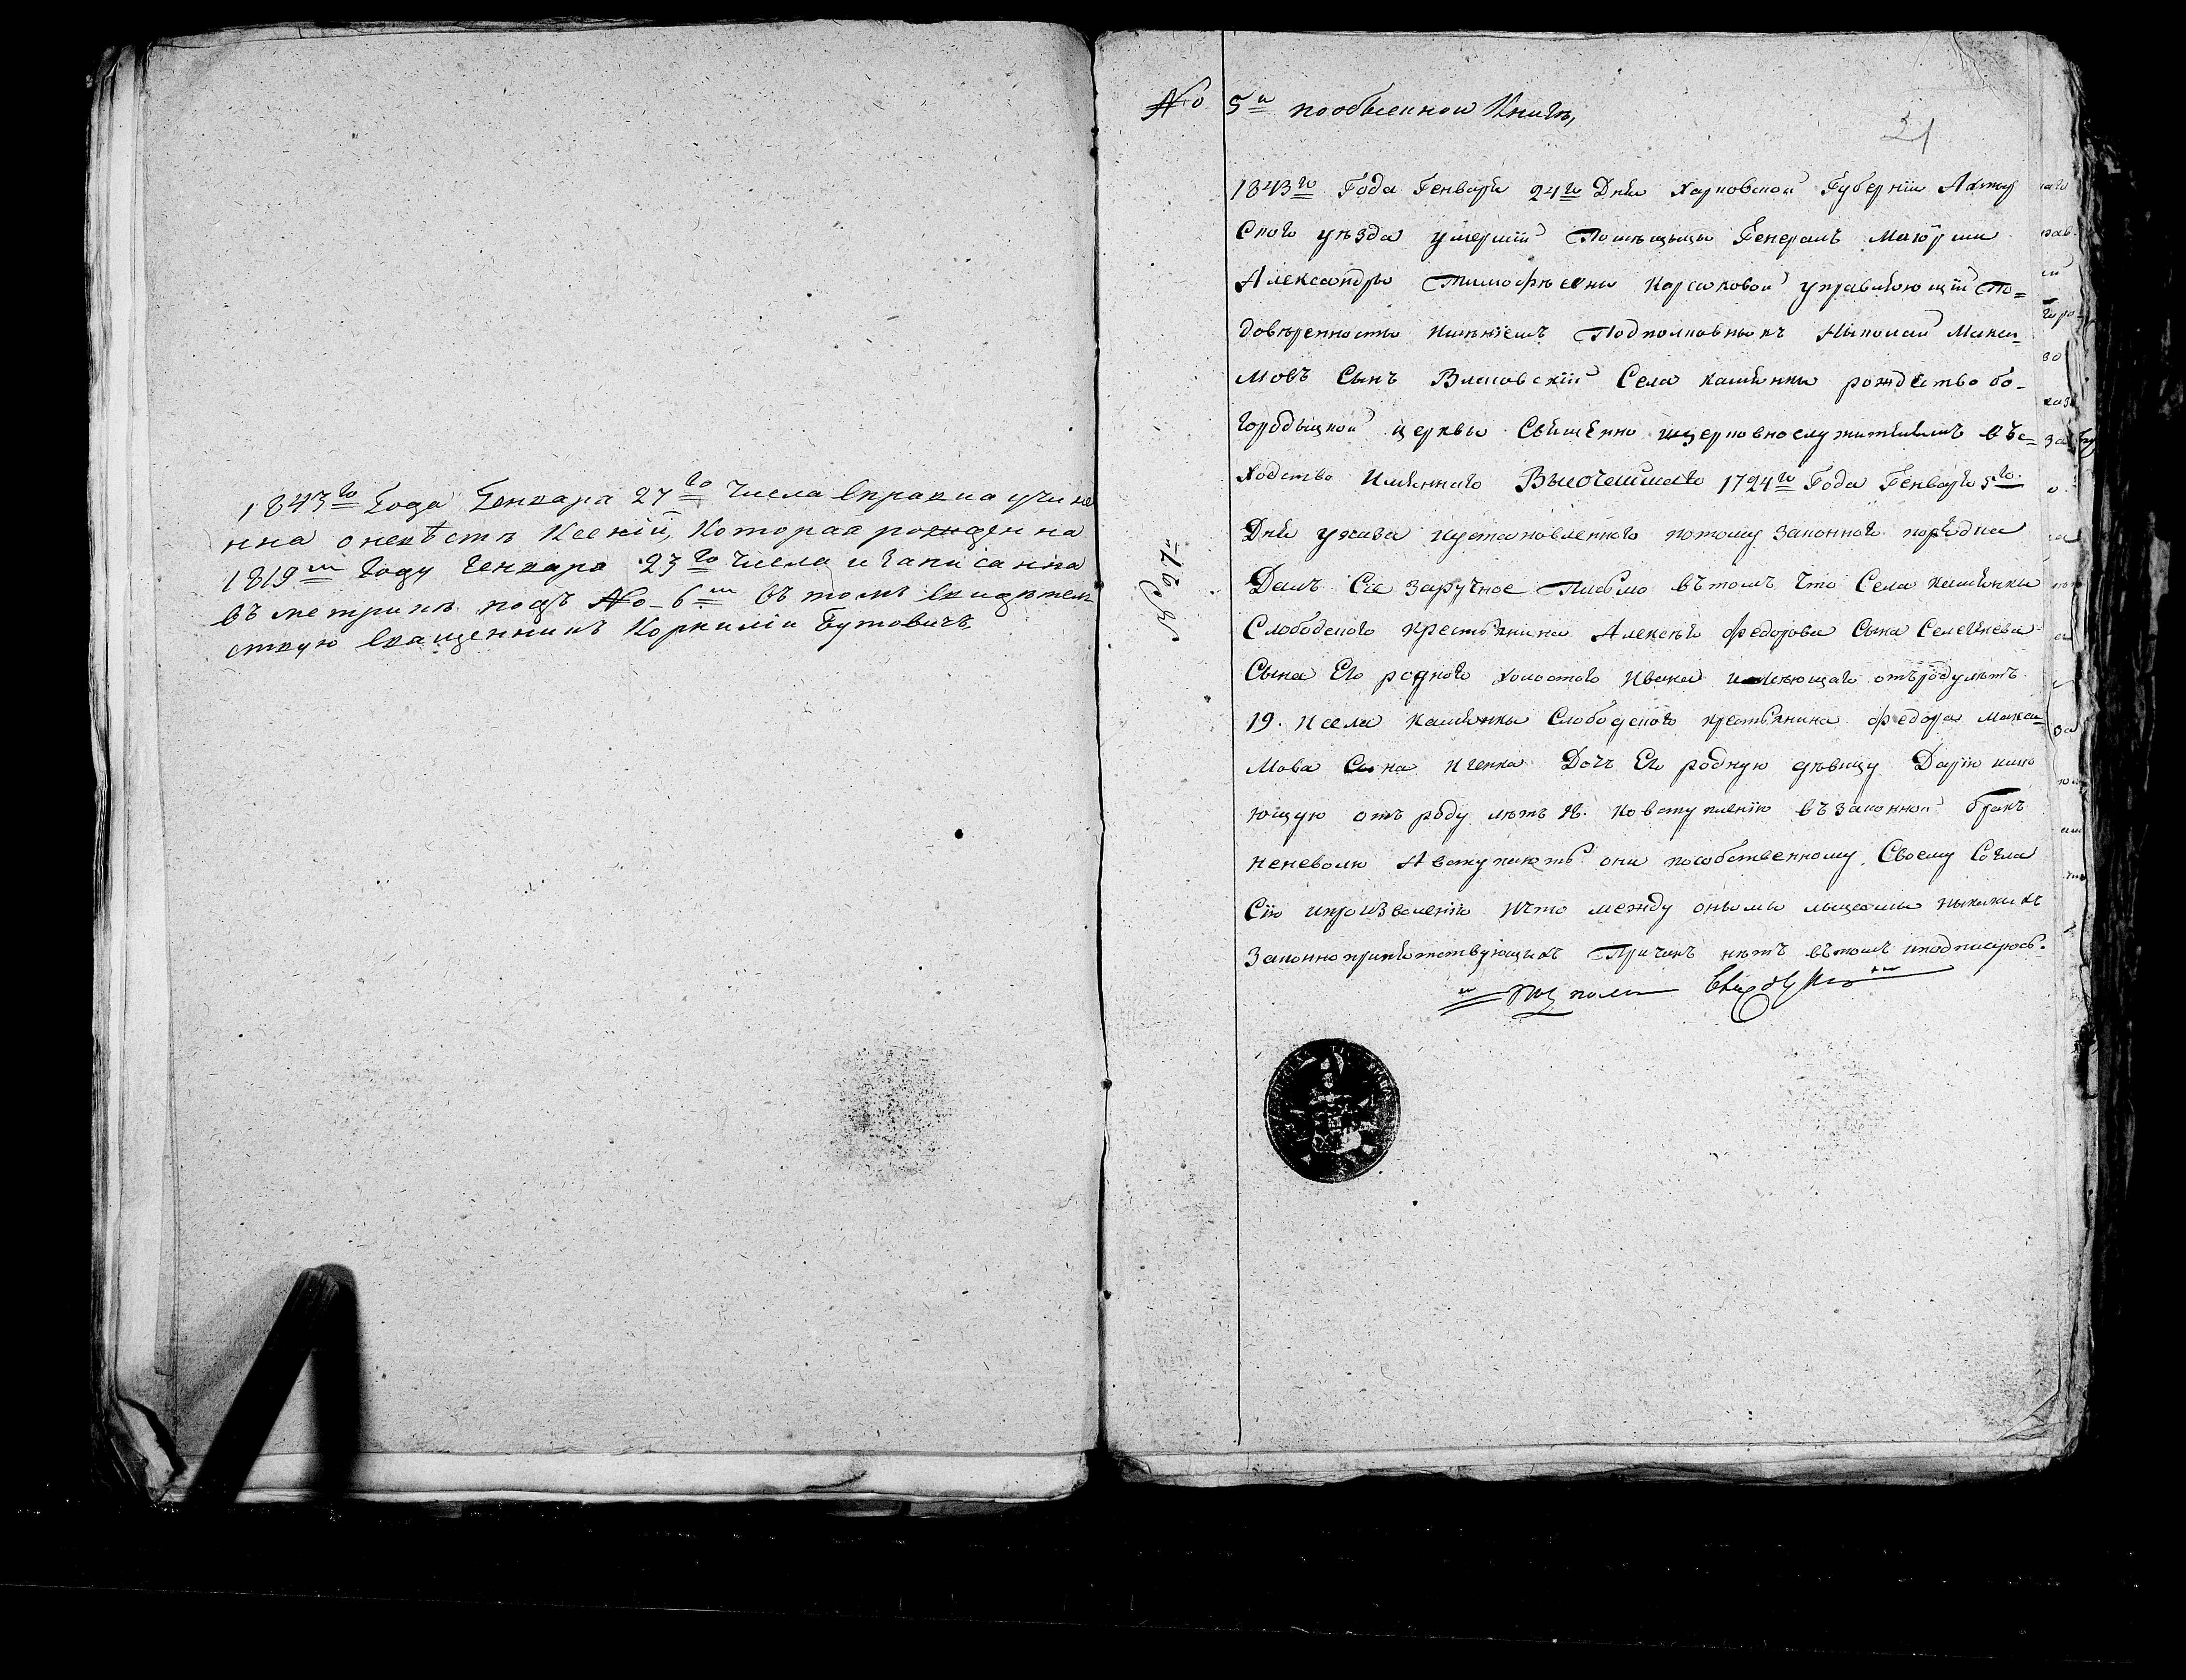 1843го Года Генваря 27го Числа справка учине
нна оневѣстѣ Ксеній, Которая рожденна
1819м Году Генваря 23го Числа и Записанна
въ метрикѣ подъ No 6м въ томъ Свидѣтель
ствую Священникъ Корнилій Бутовичъ
No 5й пообыскной Книгѣ,
21
1843го Года Генваря 24го Дня Харковской Губерніи Ахтыр
Скаго уѣзда умершій Помѣщицы Генералъ Маіорши
Александры Тимофѣевны Корсаковой управляющій По=
довѣренности Имѣніемъ Подполковникъ Николай Макси=
мовъ Сынъ Села Камянки рождество бо-
городицкой церквы Священно ицерковнослужителямъ въс=
ходство Имяннаго Высочайшаго 1724го Года Генваря 5го
Дня указа иустановленного потому законного порядка
Далъ Сіе Заручное Письмо вътомъ что Села камянки
Слободского крестянина Алексѣя федорова Сына Селезнева
Сына Его родного холостого Ивана имѣющаго отъроду лѣтъ
19. Исела Камянки Слободского крестянина федора макси=
мова Сына Дочъ Его родную дѣвицу Дарію имѣ
ющую отъ роду лѣтъ Ковступленію въ законной бракъ
неневолю Авступаютъ они пособственному Своему Согла
Сію ипроизволенію Ичто между оными лыцами ныкакихъ
Законнопрепятствующихъ Причинъ нѣтъ вътомъ иподписуюсь.